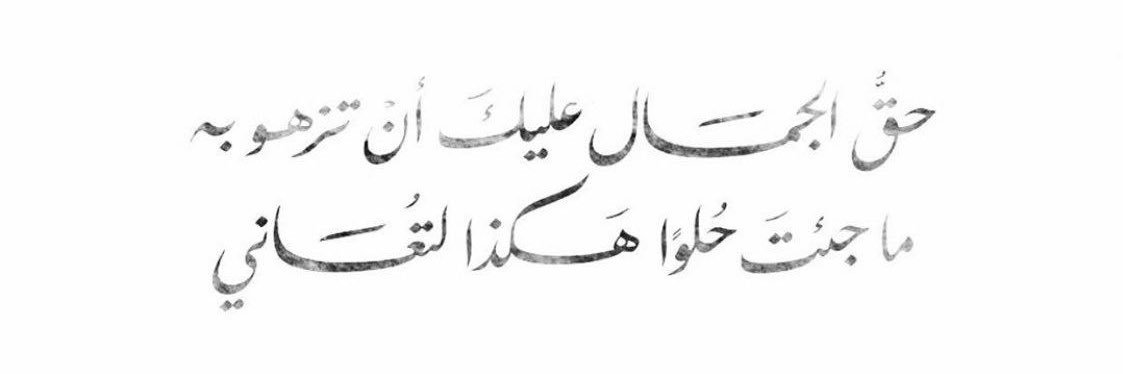 حقُّ الجمَال عليكَ أنْ تزهو به
ما جئتَ حُلوًا هَكذا لتُعَاني